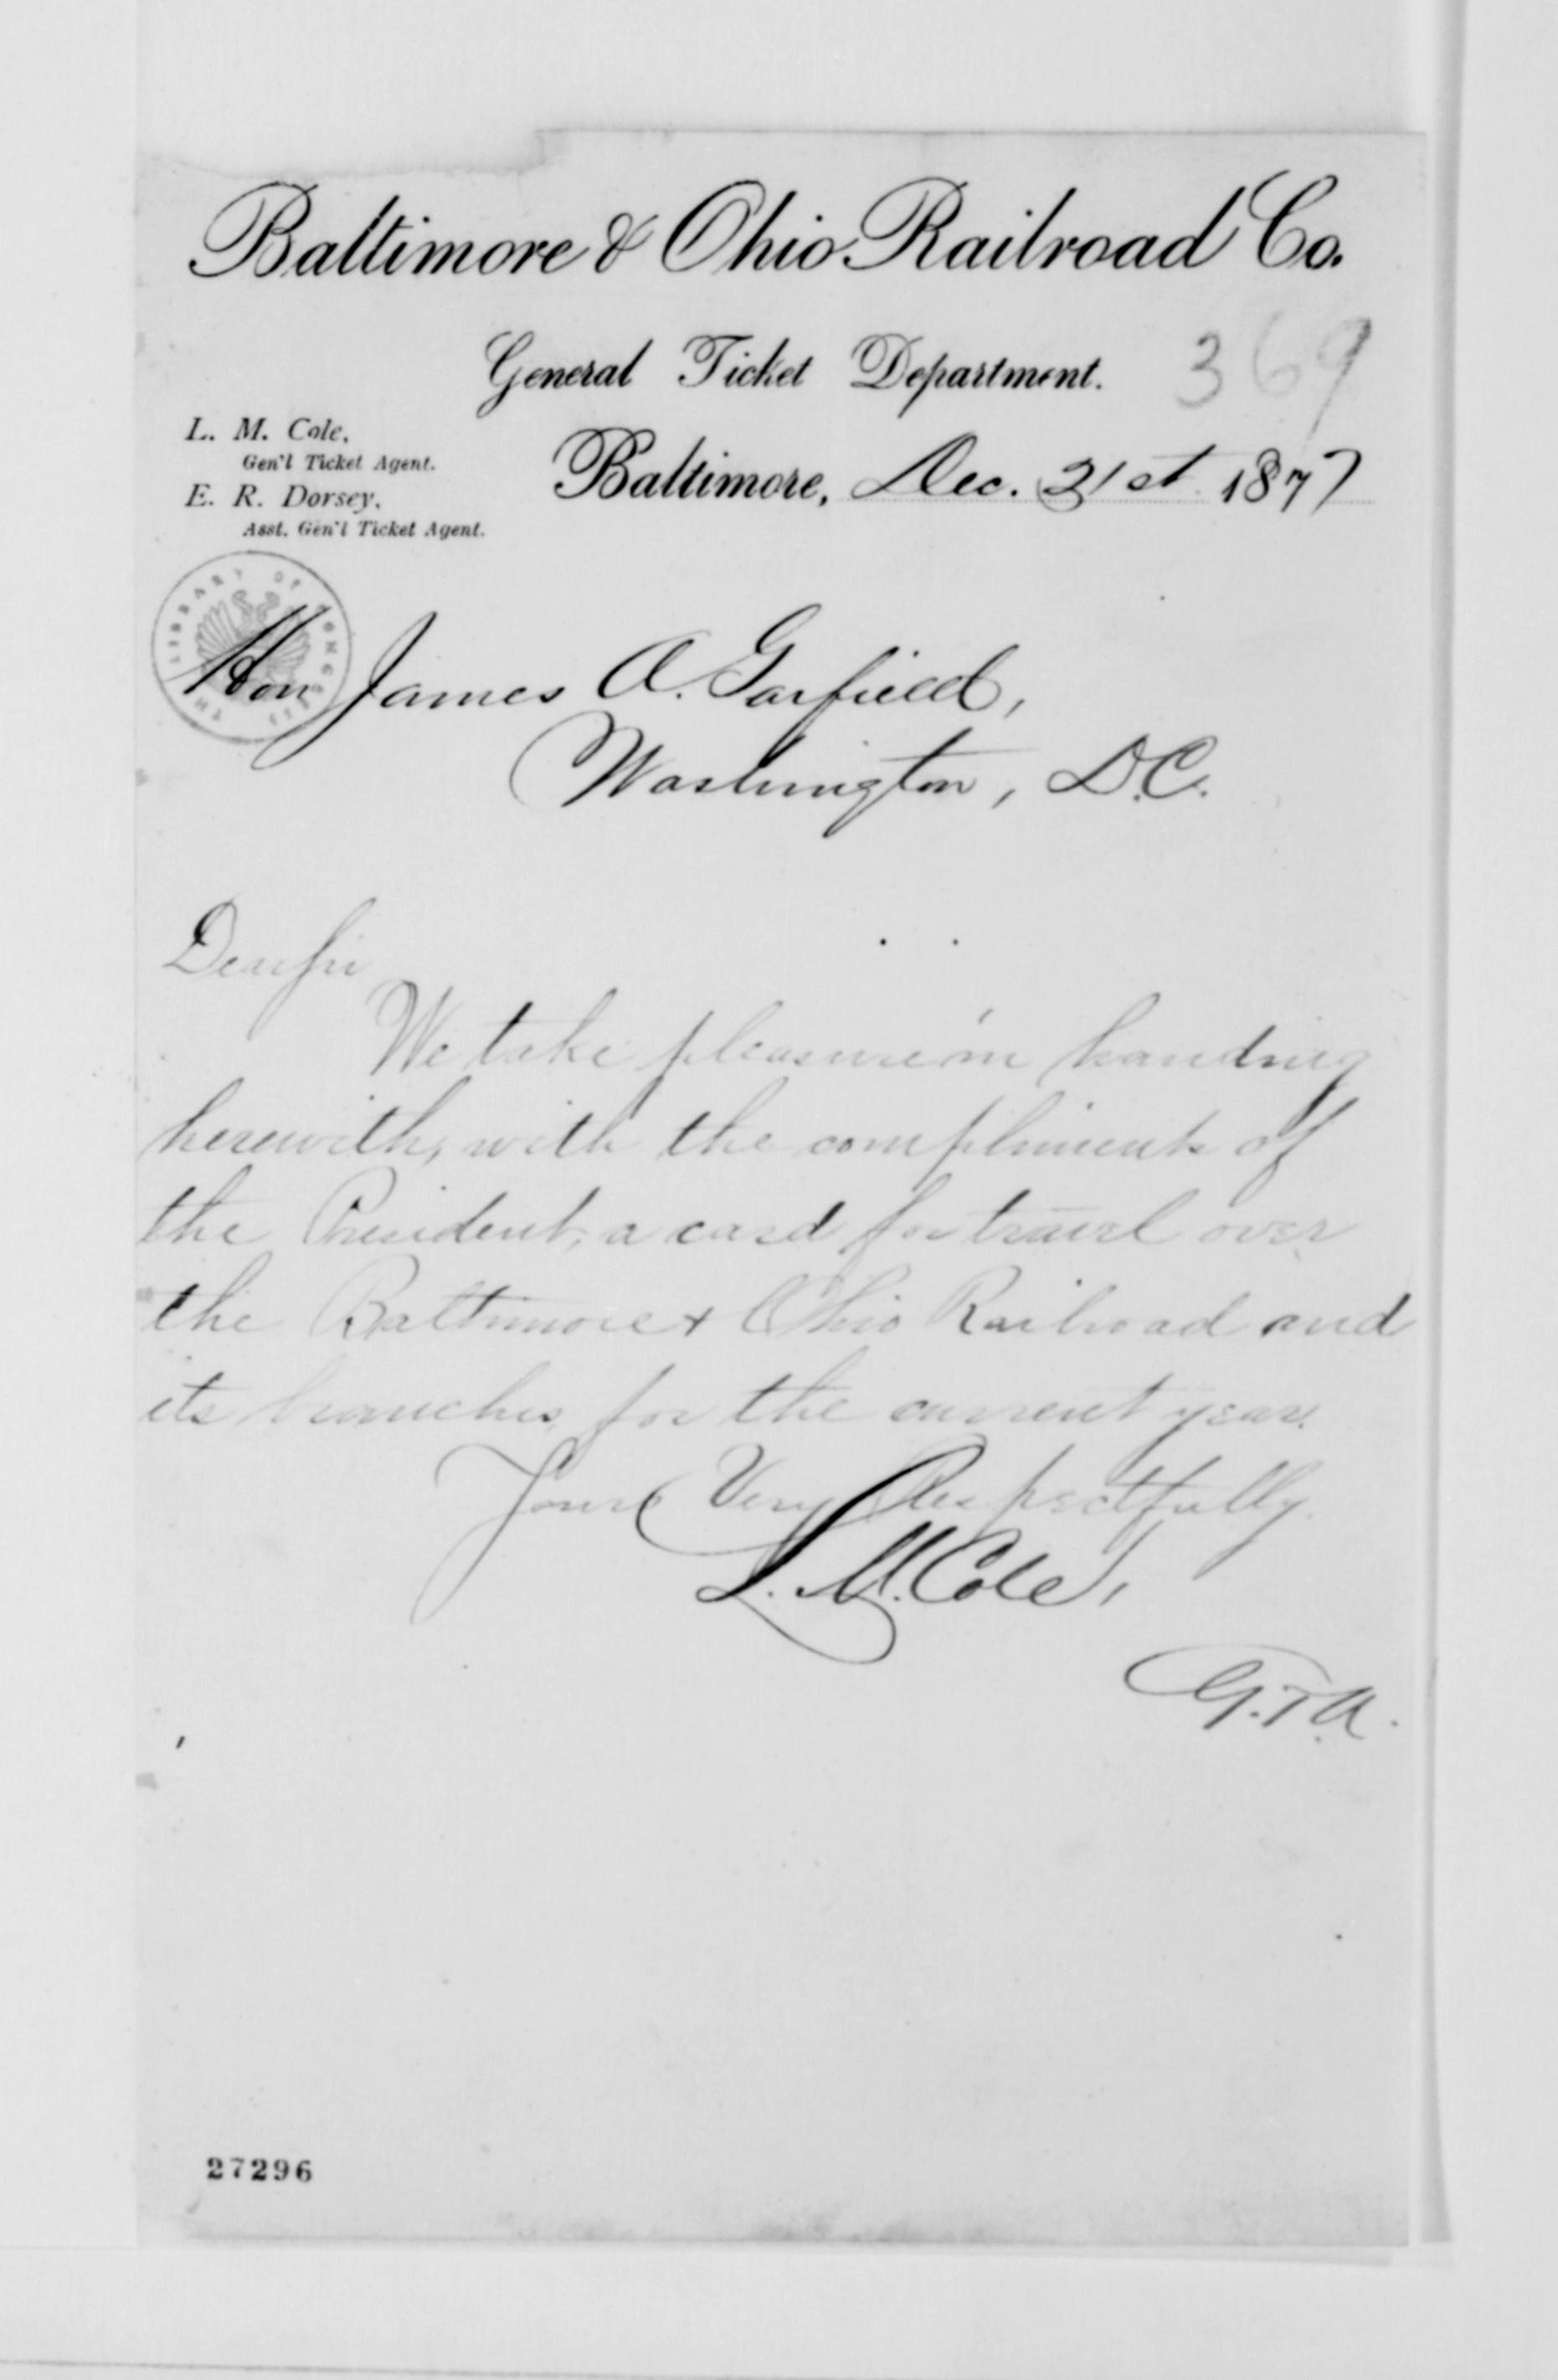 Baltimore & Ohio Railroad Co.
General Ticket Department.
369
L. M. Cole,
Gen'l Ticket Agent.
E. R. Dorsey,
Asst. Gen'l Ticket Agent.
Baltimore, Dec. 31st 1877
THE LIBRARY OF CONGRESS
Hon James A. Garfield,
Washington, D.C.
Dear Sir
We take pleasure in handing
herewith, with the compliments of
the President, a card for travel over
the Baltimore & Ohio Railroad and
its branches, for the current year.
Yours Very Respectfully.
L. M. Cole,
G.T.A.
27296